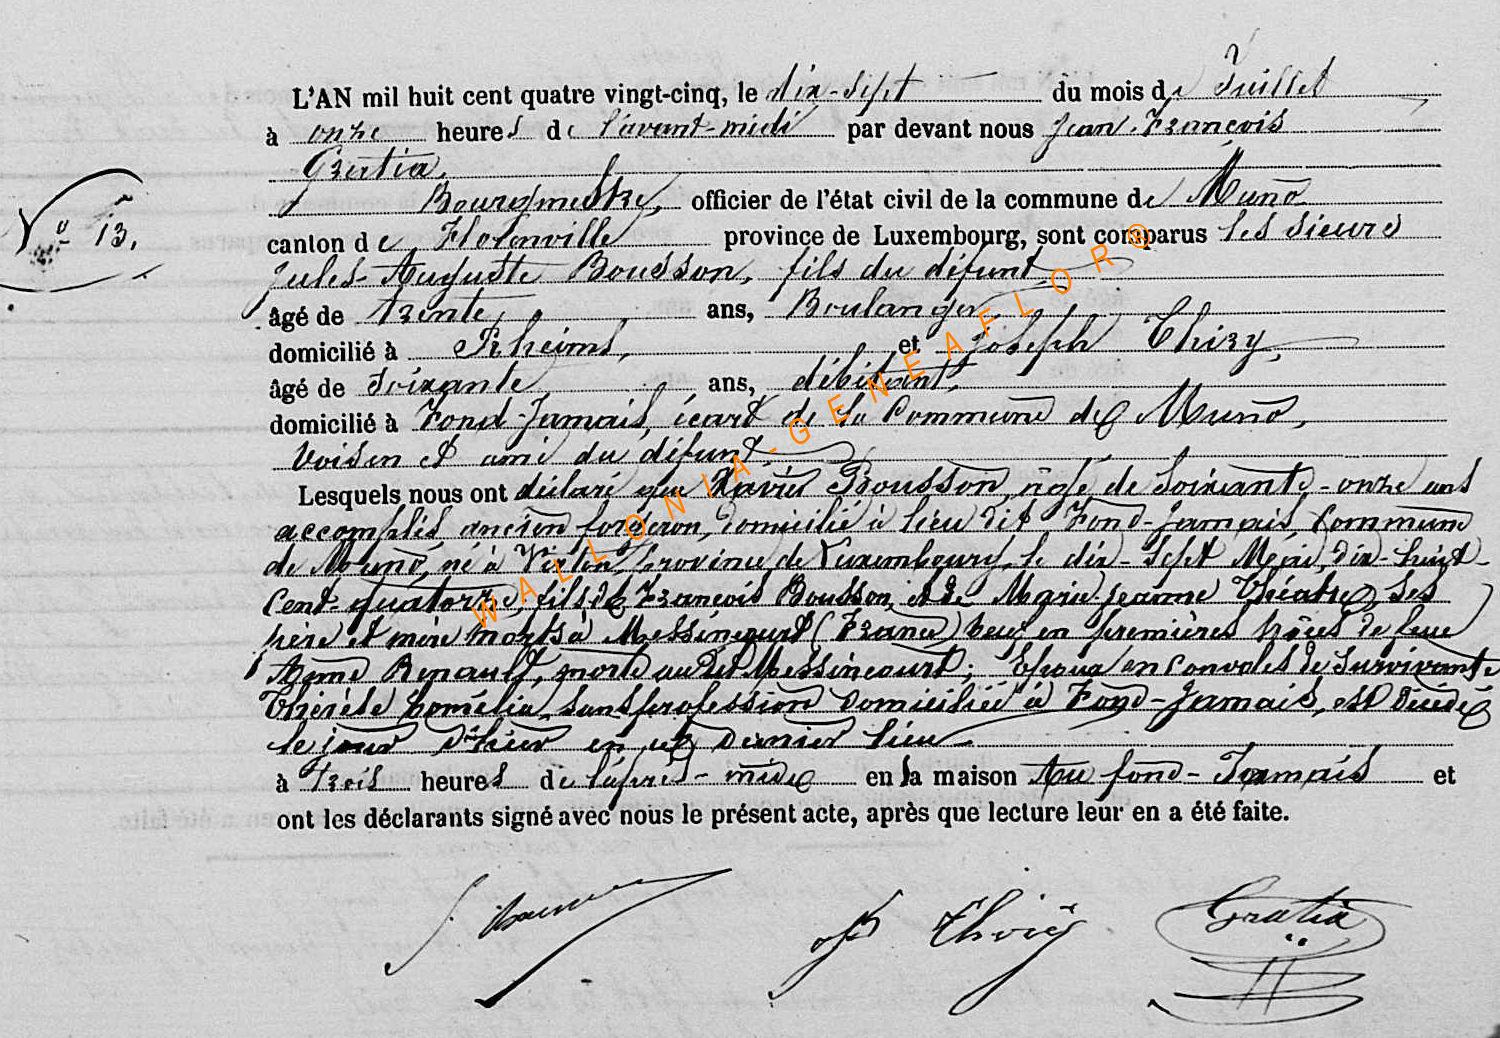 L'AN mil huit cent quatre vingt-cinq, le dix-sept du mois de Juillet
à onze heures de l'avant-midi par devant nous Jean-François
Gratia,
Bourgmestre, officier de l'état civil de la commune de Muno
N° 13.
canton de Florenville province de Luxembourg, sont comparus les sieurs
Jules-Auguste Bousson, fils du défunt
âgé de trente ans, Boulanger,
domicilié à Rheims, et Joseph Thiry,
âgé de soixante ans, débitant,
domicilié à Fond-Jamais, écart de la Commune de Muno,
voisin et ami du défunt
Lesquels nous ont déclaré que Xavier Bousson, âgé de soixante-onze ans
accomplis, ancien forgeron, domicilié à lieu dit Fond-Jamais, Commune
de Muno, né à Virton, Province de Luxembourg, le dix-sept Mai, dix-huit-
Cent-quatorze, fils de François Bousson, et de Marie-Jeanne Théatre, ses
père et mère morts à Messincourt (France) veuf en premières nôces de feue
Renault, morte au dit Messincourt; Epoux en Convoles de survivante
Thérèse sans profession domiciliée à Fond-Jamais, est décédé
le jour d'hier en ce dernier lieu
à trois heures de l'après-midi en sa maison au fond-Jamais et
ont les déclarants signé avec nous le présent acte, après que lecture leur en a été faite.
Jph Thiry
Gratia
WALLONIA-GENEAFLOR®